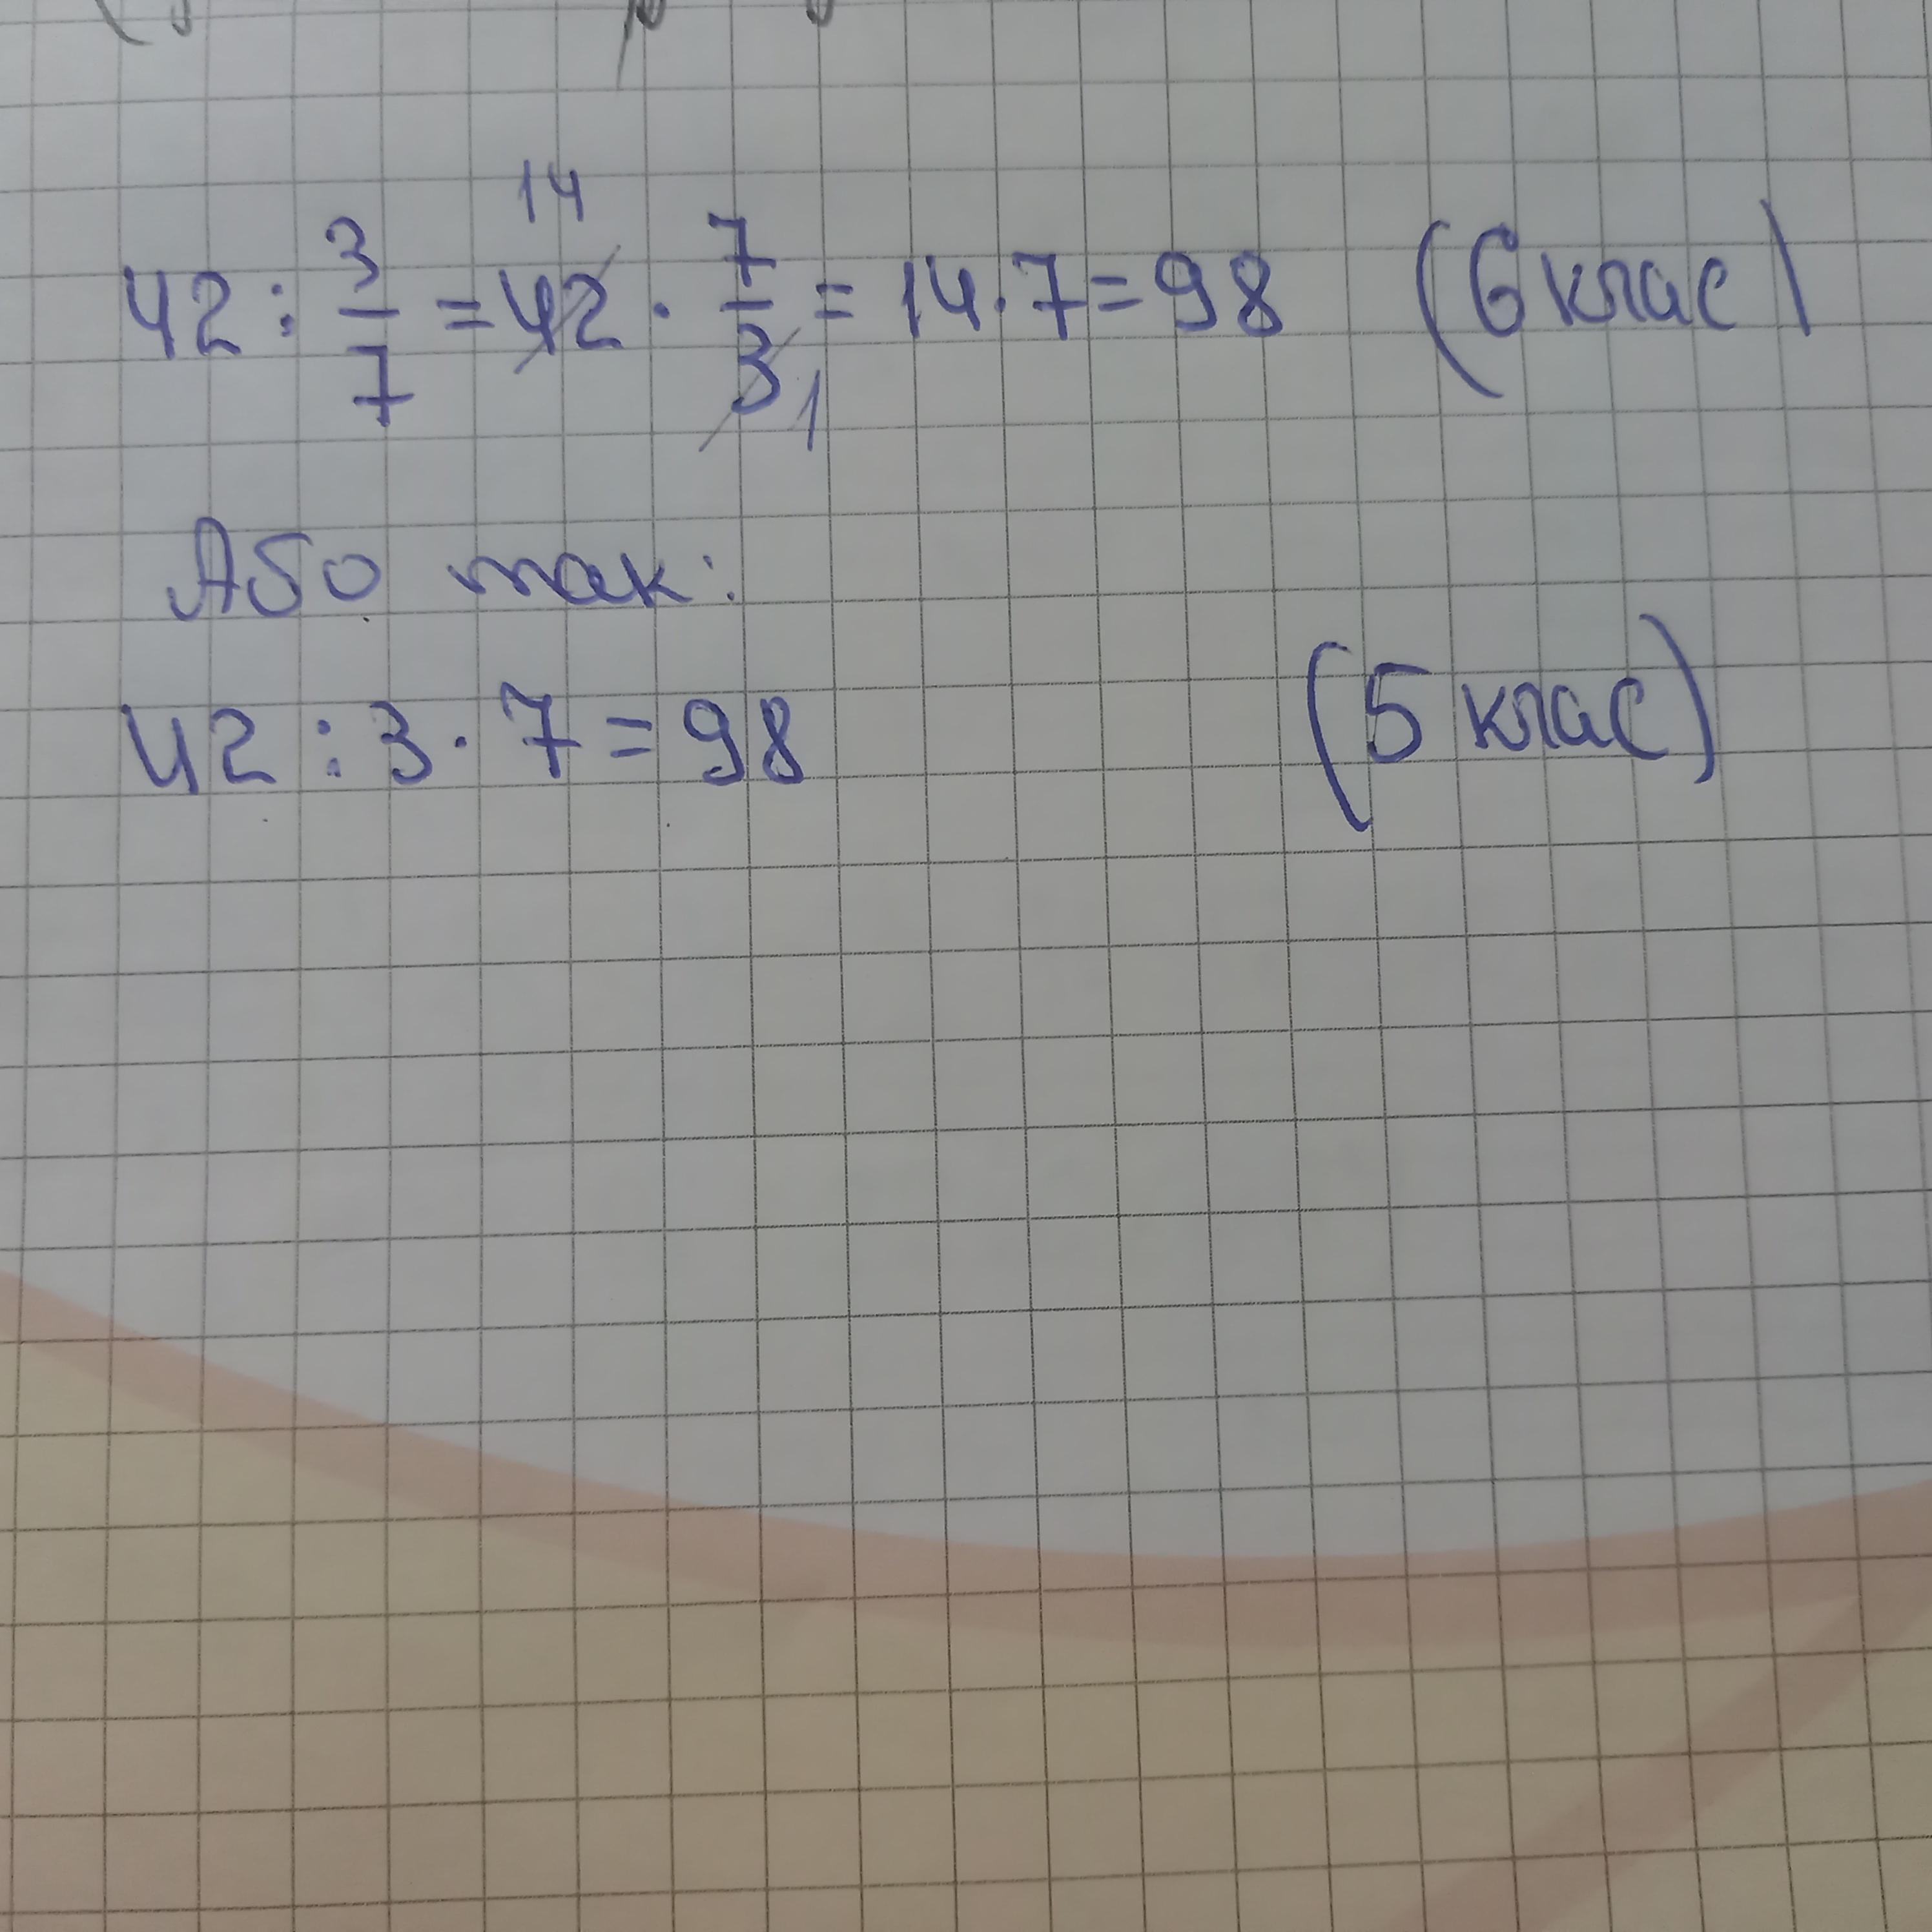 42 : 3/7 = 42 · 7/3 = 14 · 7 = 98 (6 клас)
14
1
Або так:
42 : 3 · 7 = 98 (5 клас)